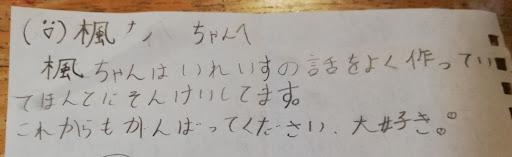 楓 ちゃんへ
楓ちゃんはいれいすの話をよく作ってい
てほんとにそんけいしてます。
これからもがんばってください、大好き。